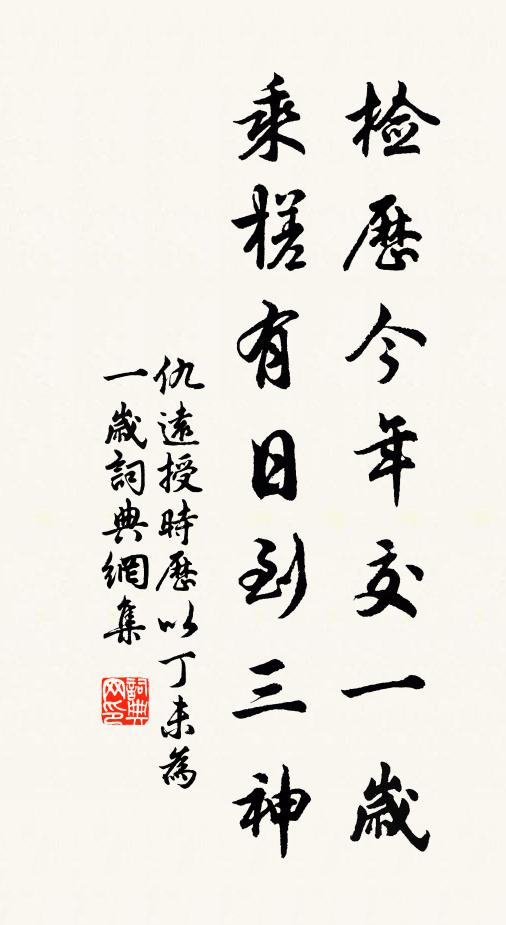 检歷今年交一歲
乘槎有日到三神
仇遠授時歷以丁未為
一歲詞典網集
詞典
网印